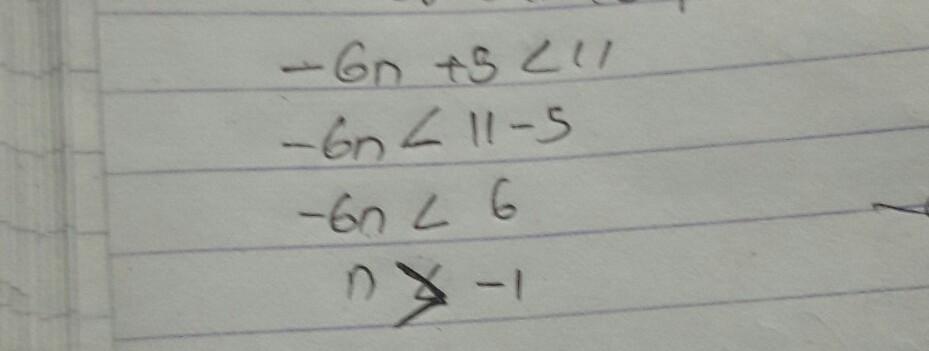 -6n +5 < 11
-6n < 11-5
-6n < 6
n > -1